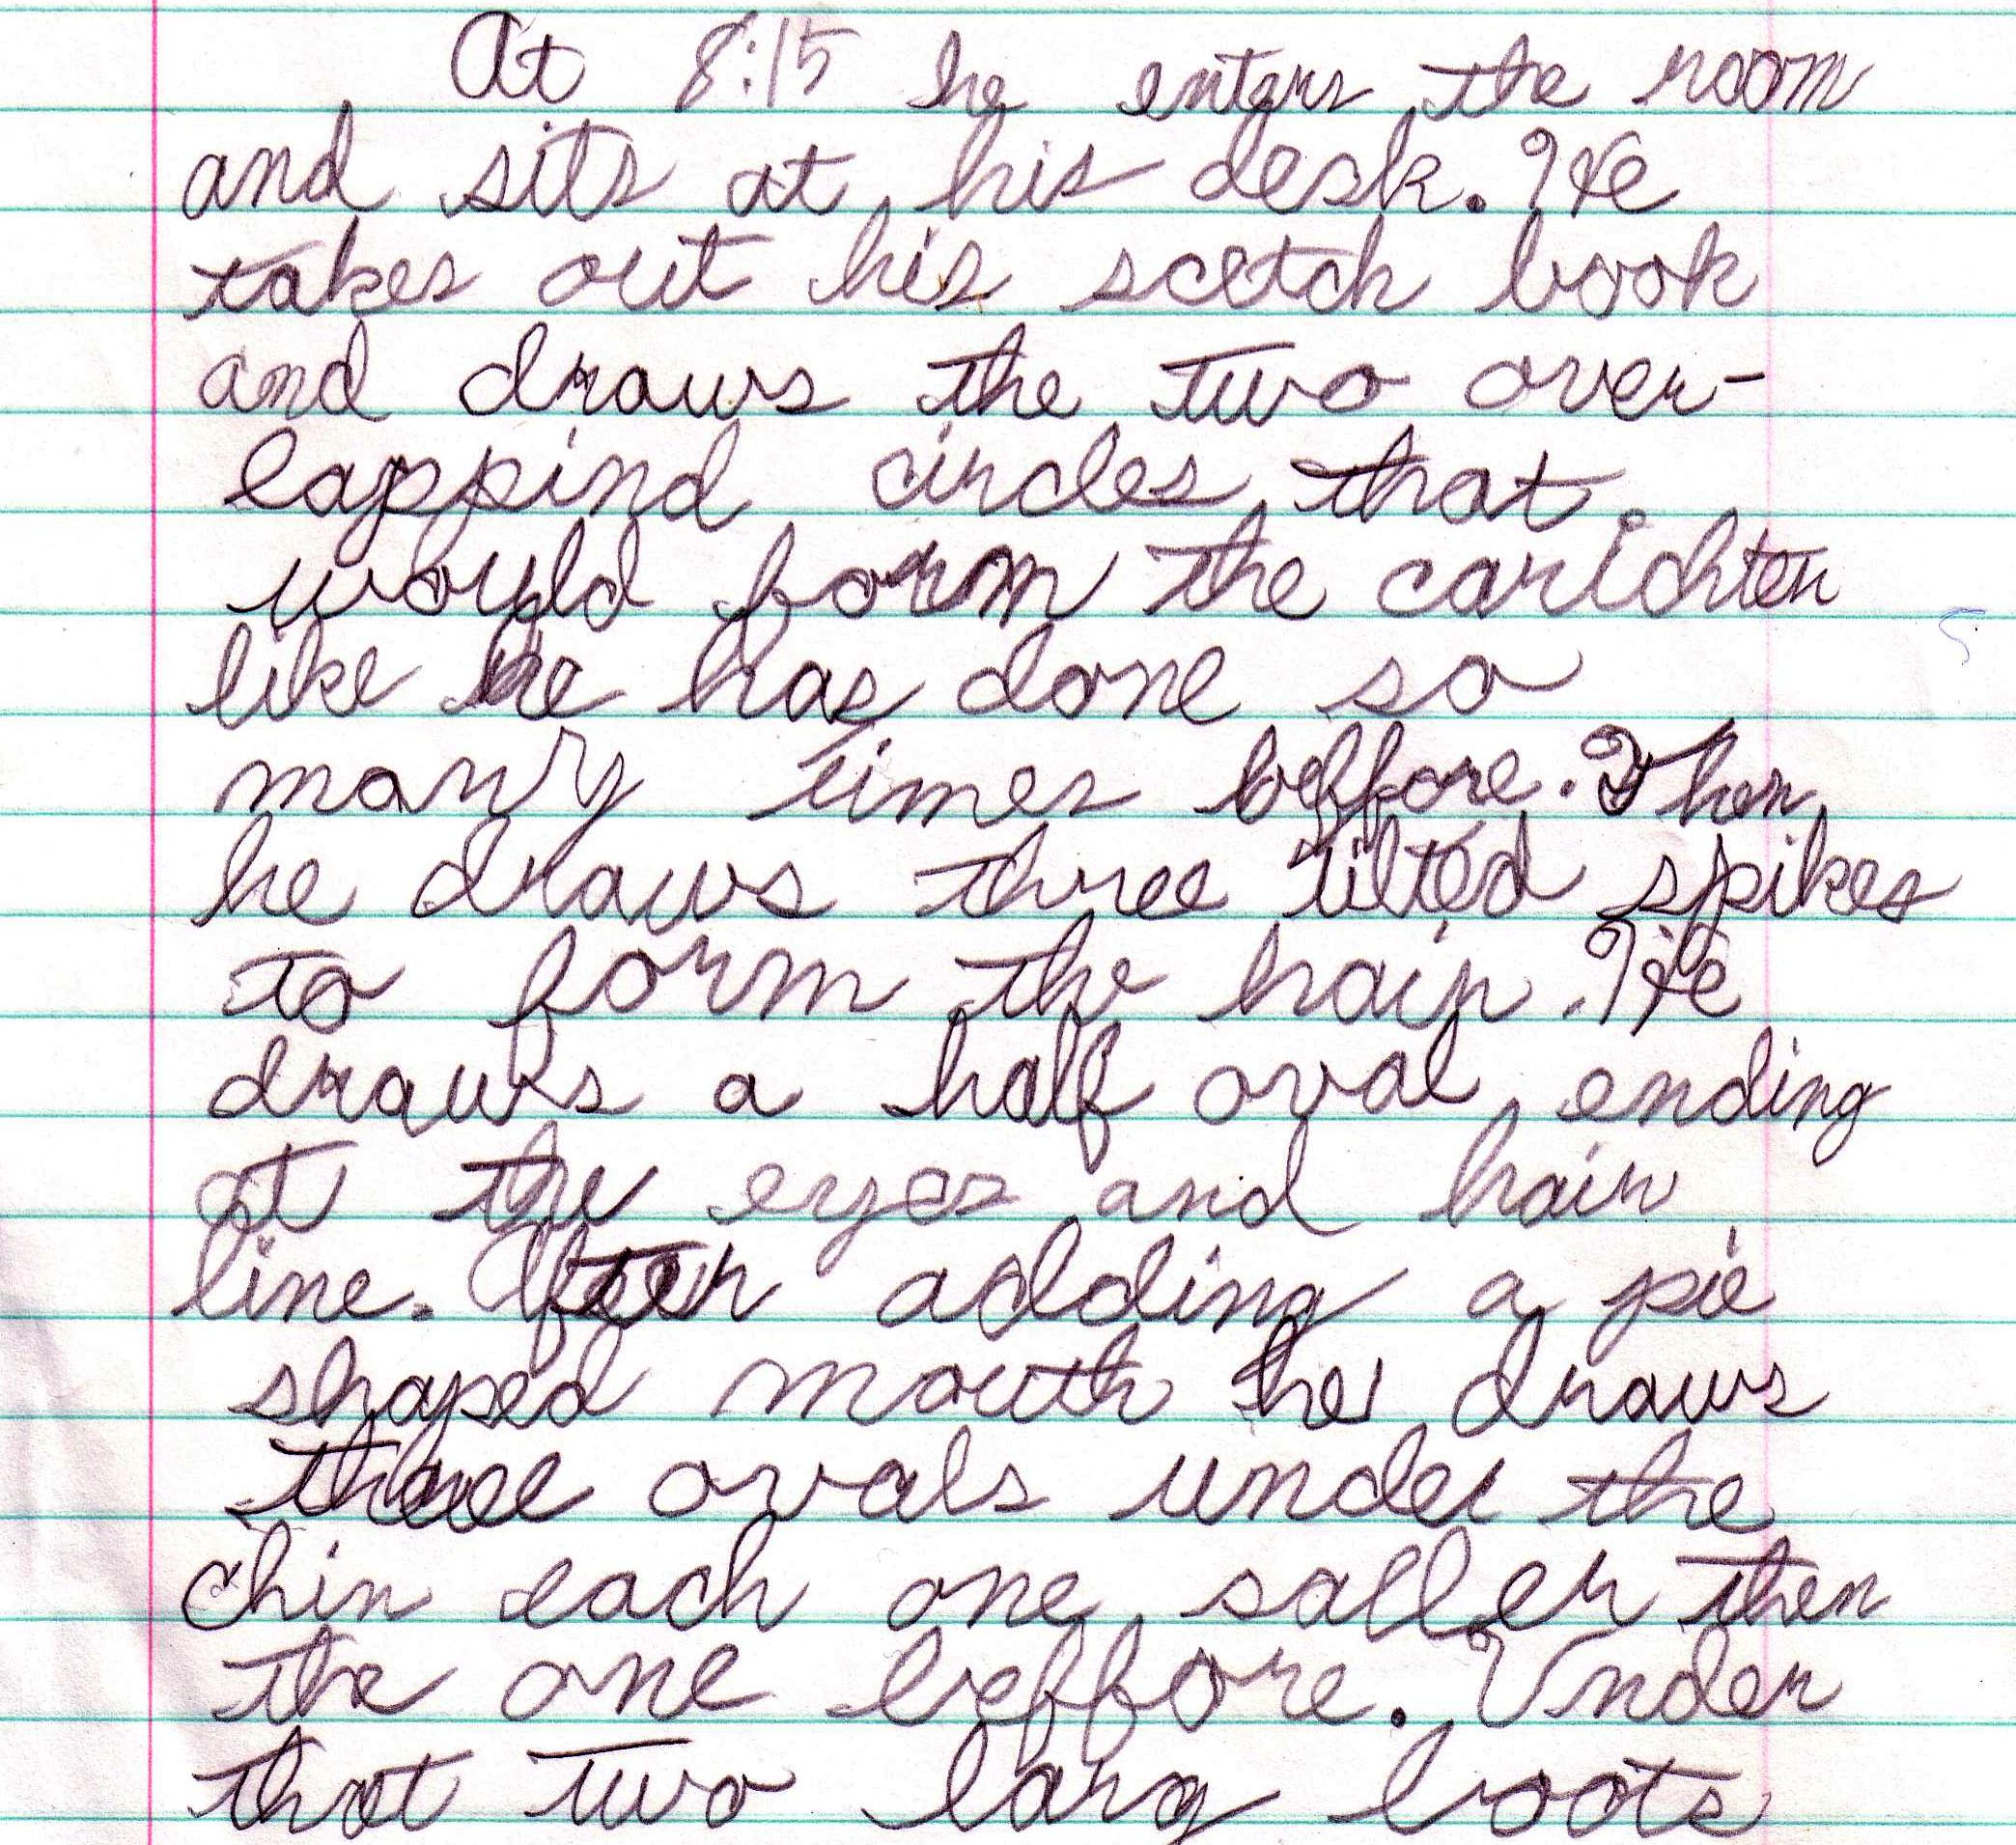 At 8:15 he enters the room
and sits at his desk. He
takes out his scetch book
and draws the two over-
lappind circles that
would form the carichter
like he has done so
many times beffore. Then
he draws three tilted spikes
to form the hair. He
draws a half oval ending
at the eyes and hair
line. After adding a pie
shaped mouth he draws
three ovals under the
chin each one saller then
the one beffore. Under
that two larg boots